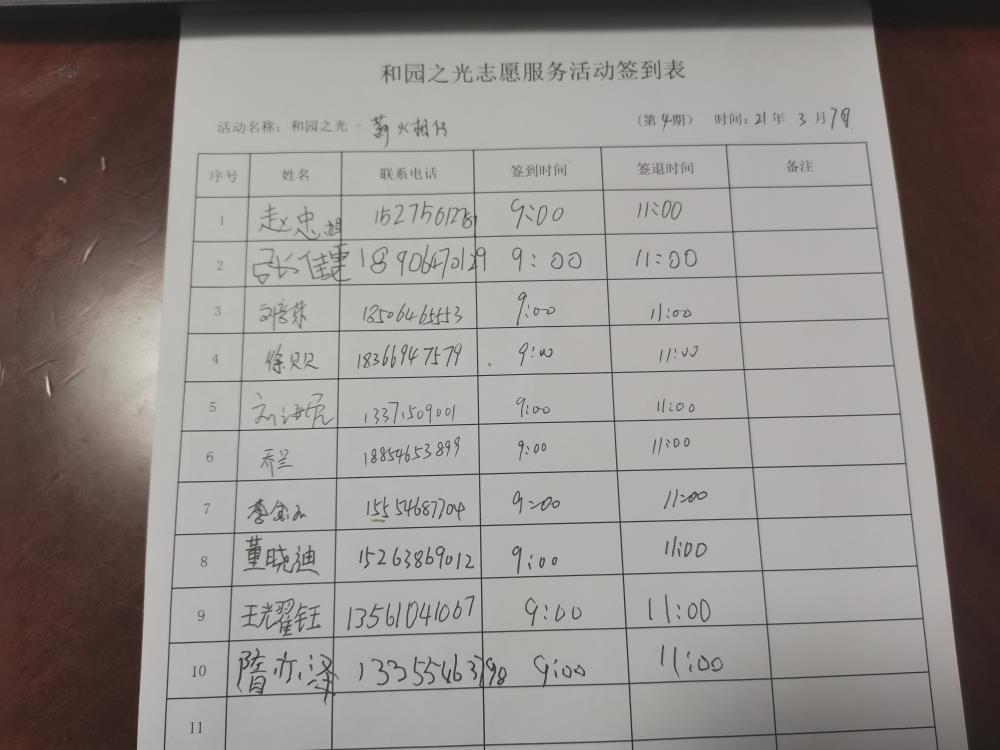 和园之光志愿服务活动签到表
活动名称：和园之光-薪火相传 （第4期） 时间：21年3月7日
序号 姓名 联系电话 签到时间 签退时间 备注
1 赵忠 9:00 11:00
2 张佳 18906470129 9:00 11:00
3 18506465553 9:00 11:00
4 徐贝贝 18366947579 9:00 11:00
5 刘海 13371509001 9:00 11:00
6 乔兰 18854653899 9:00 11:00
7 李 15554687704 9:00 11:00
8 董晓迪 15263869012 9:00 11:00
9 王耀钰 13561041067 9:00 11:00
10 隋亦泽 13355463798 9:00 11:00
11